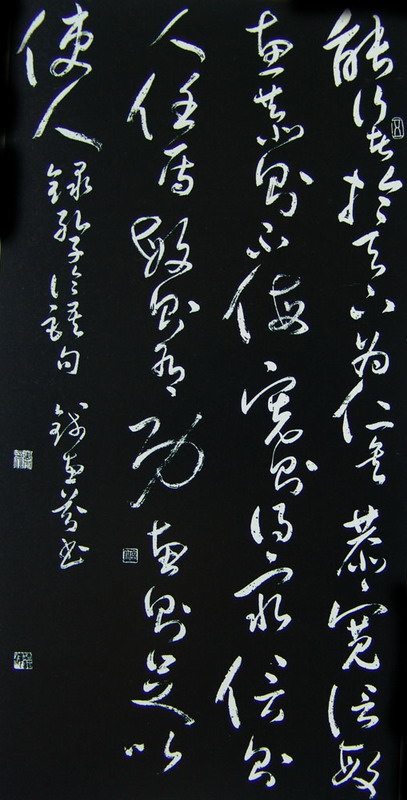 能行五者於天下為仁矣恭寬信敏
惠恭則不侮寬則得眾信則
人任焉敏則有功惠則足以
使人 錄孔子論語句 錢惠芬书